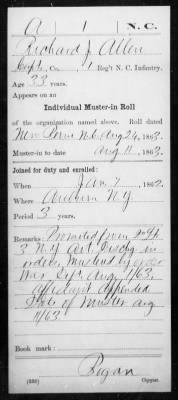 A | 1 | N. C.
Richard J. Allen
Capt., Co. , 1 Reg't N. C. Infantry.
Age 33 years.
Appears on an
Individual Muster-in Roll
of the organization named above. Roll dated
New Berne N.C. Aug 24, 1863.
Muster-in to date Aug 11, 1863.
Joined for duty and enrolled:
When Jan. 7, 1862.
Where Auburn N.Y.
Period 3 years.
Remarks: Promoted from
3 N.Y. Art. Dischg in
orders. Mustered by order
War Dept. Aug 11/63.
Affidavit appended
Date of Muster Aug
11/63
Book mark:
Ryan
(330) Copyist.